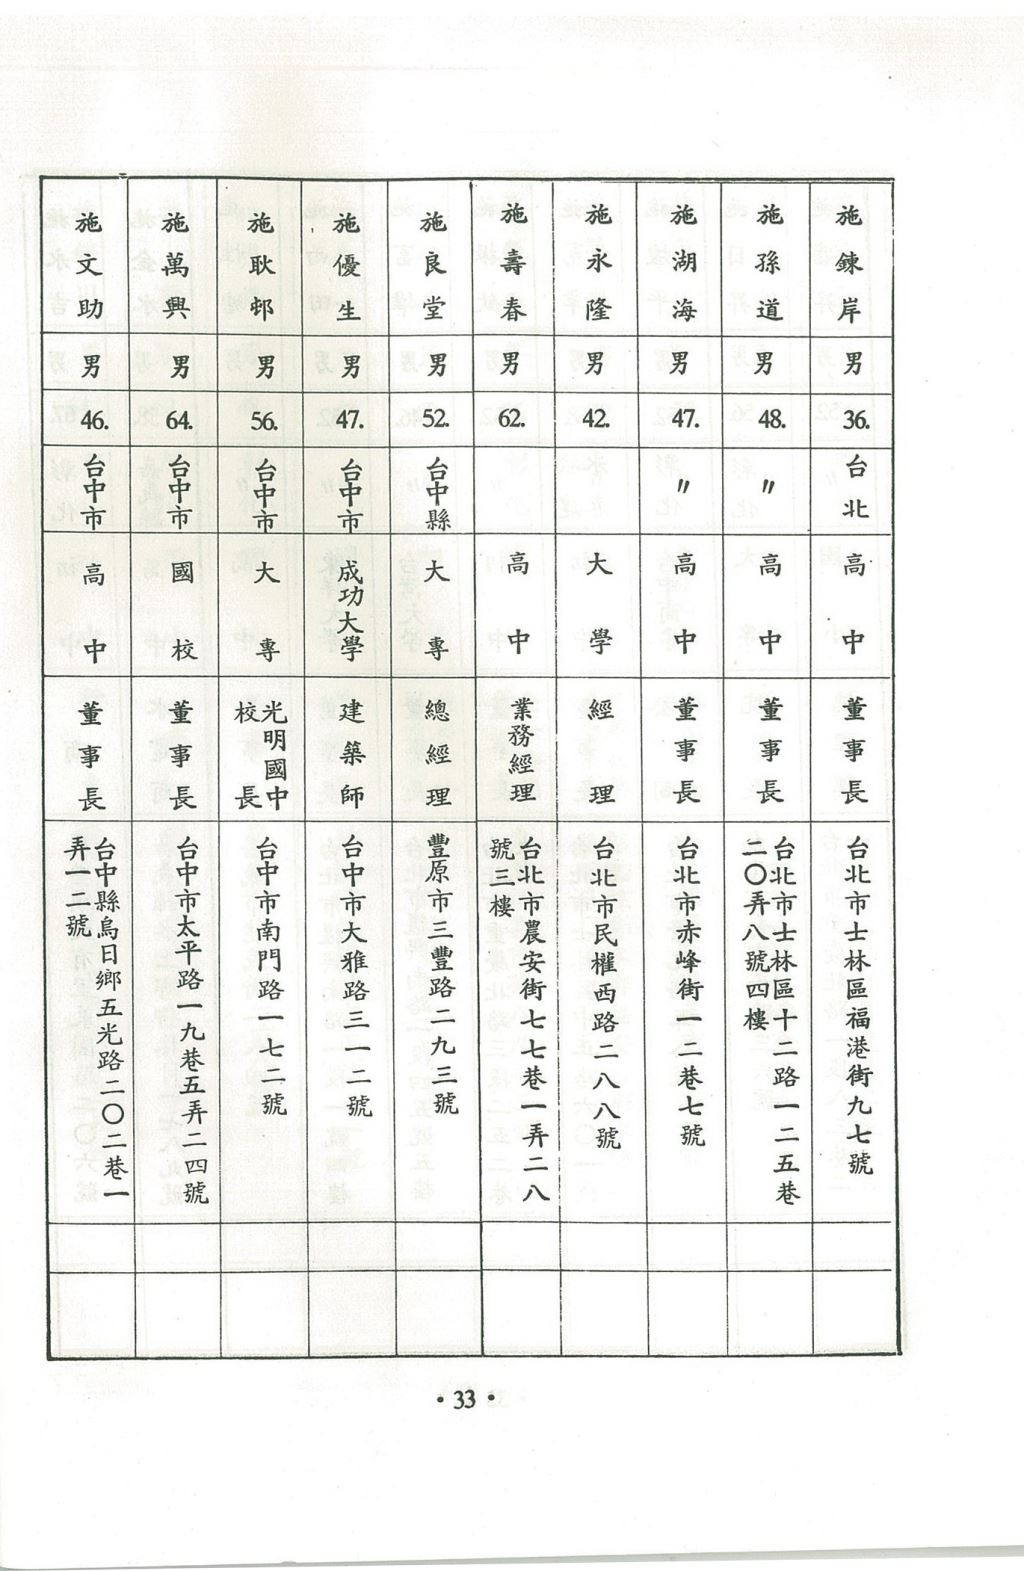 施錬岸
男
36.
台北
高中
董事長
台北市士林區福港街九七號
施孫道
男
48.
〃
高中
董事長
台北市士林區十二路一二五巷
二〇弄八號四樓
施湖海
男
47.
〃
高中
董事長
台北市赤峰街一二巷七號
施永隆
男
42.
大學
經理
台北市民權西路二八八號
施壽春
男
62.
高中
業務經理
台北市農安街七七巷一弄二八
號三樓
施良堂
男
52.
台中縣
大專
總經理
豐原市三豐路二九三號
施優生
男
47.
台中市
成功大學
建築師
台中市大雅路三一二號
施耿邨
男
56.
台中市
大專
光明國中
校長
台中市南門路一七二號
施萬興
男
64.
台中市
國校
董事長
台中市太平路一九巷五弄二四號
施文助
男
46.
台中市
高中
董事長
台中縣烏日鄉五光路二〇二巷一
弄一二號
·33·